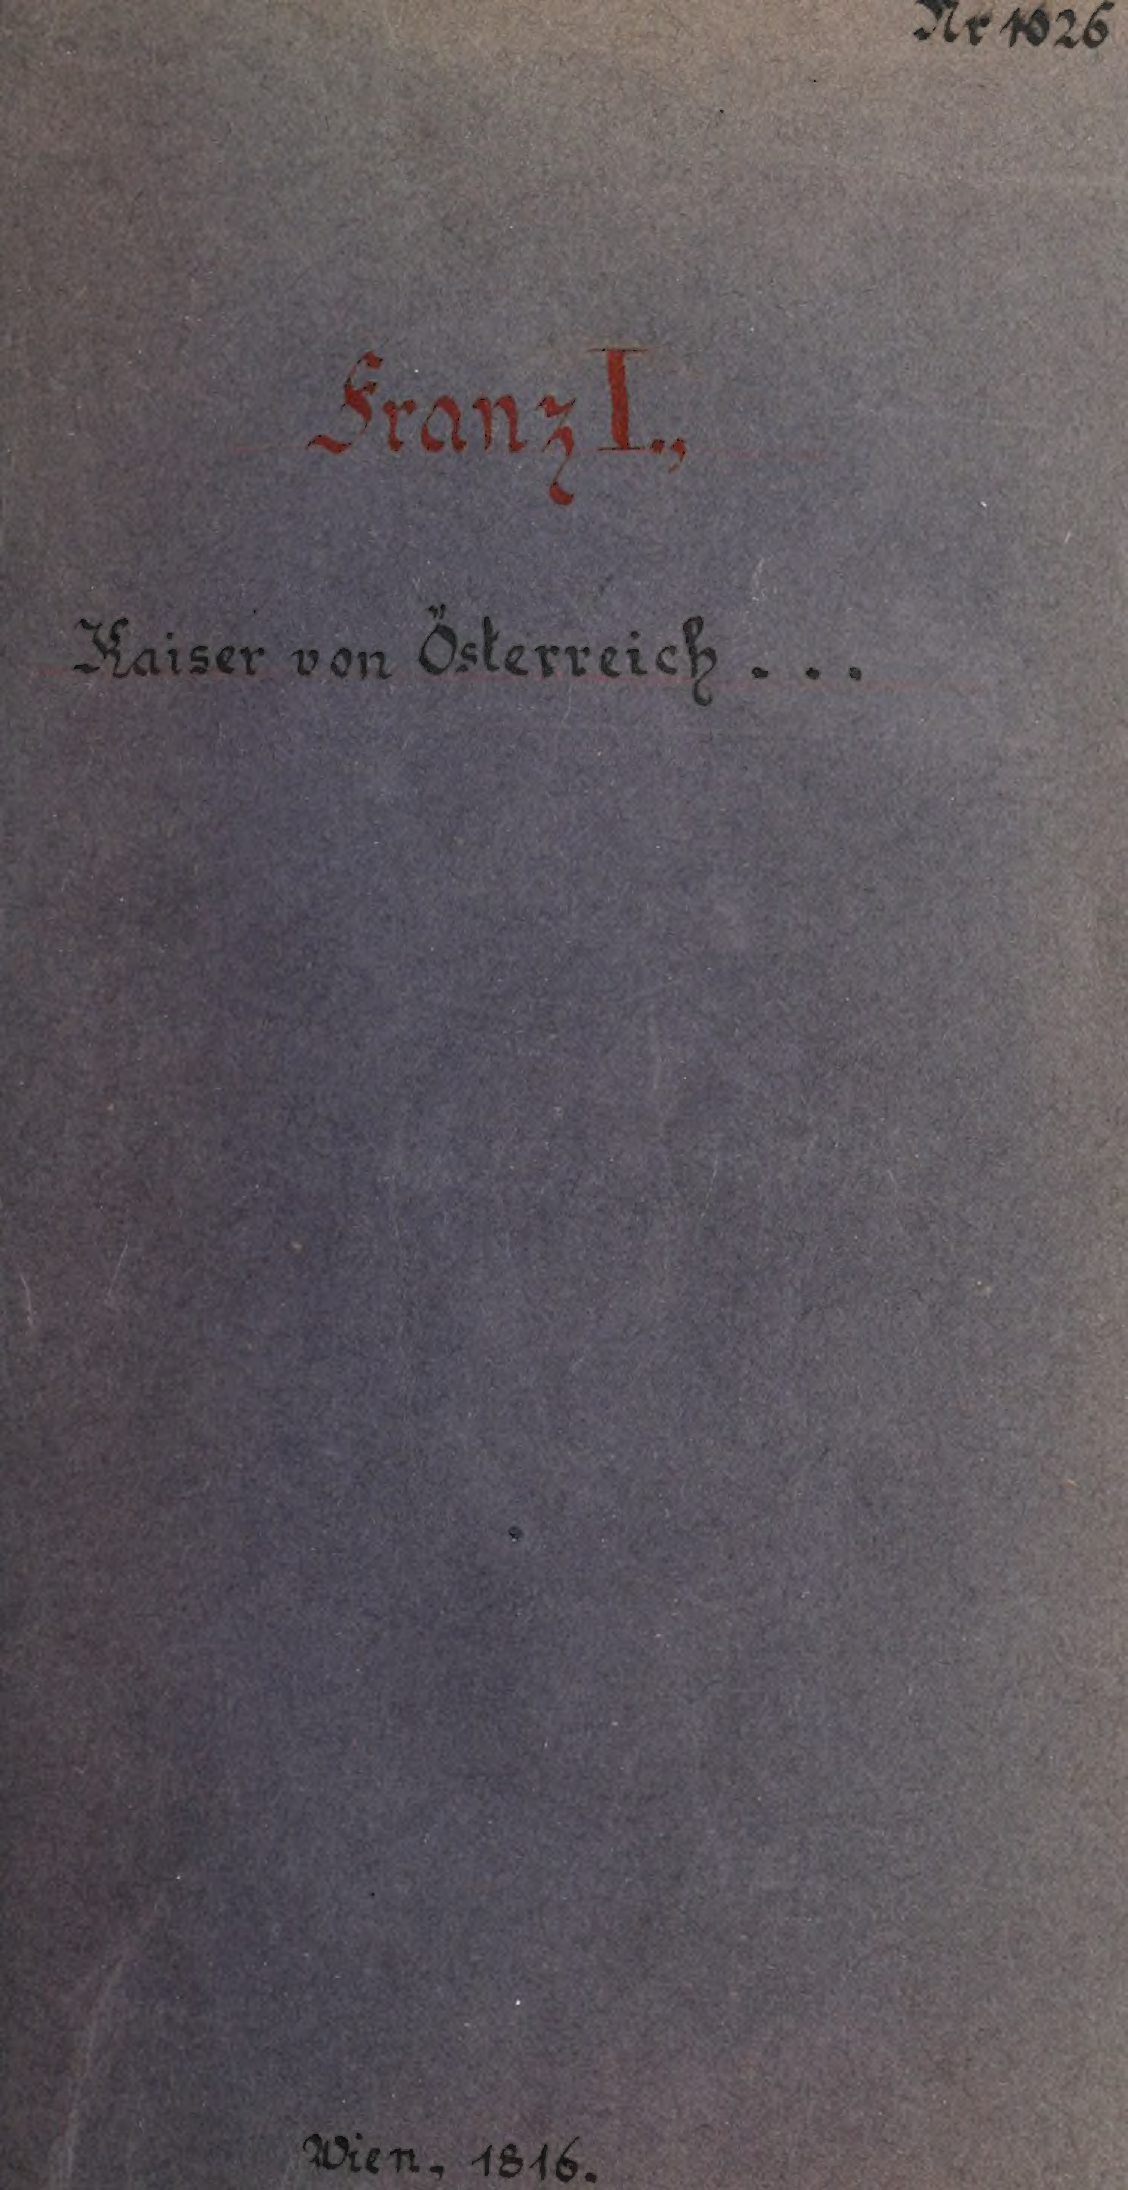 Nr 1026
Franz I.,
Kaiser von Österreich . . .
Wien, 1816.